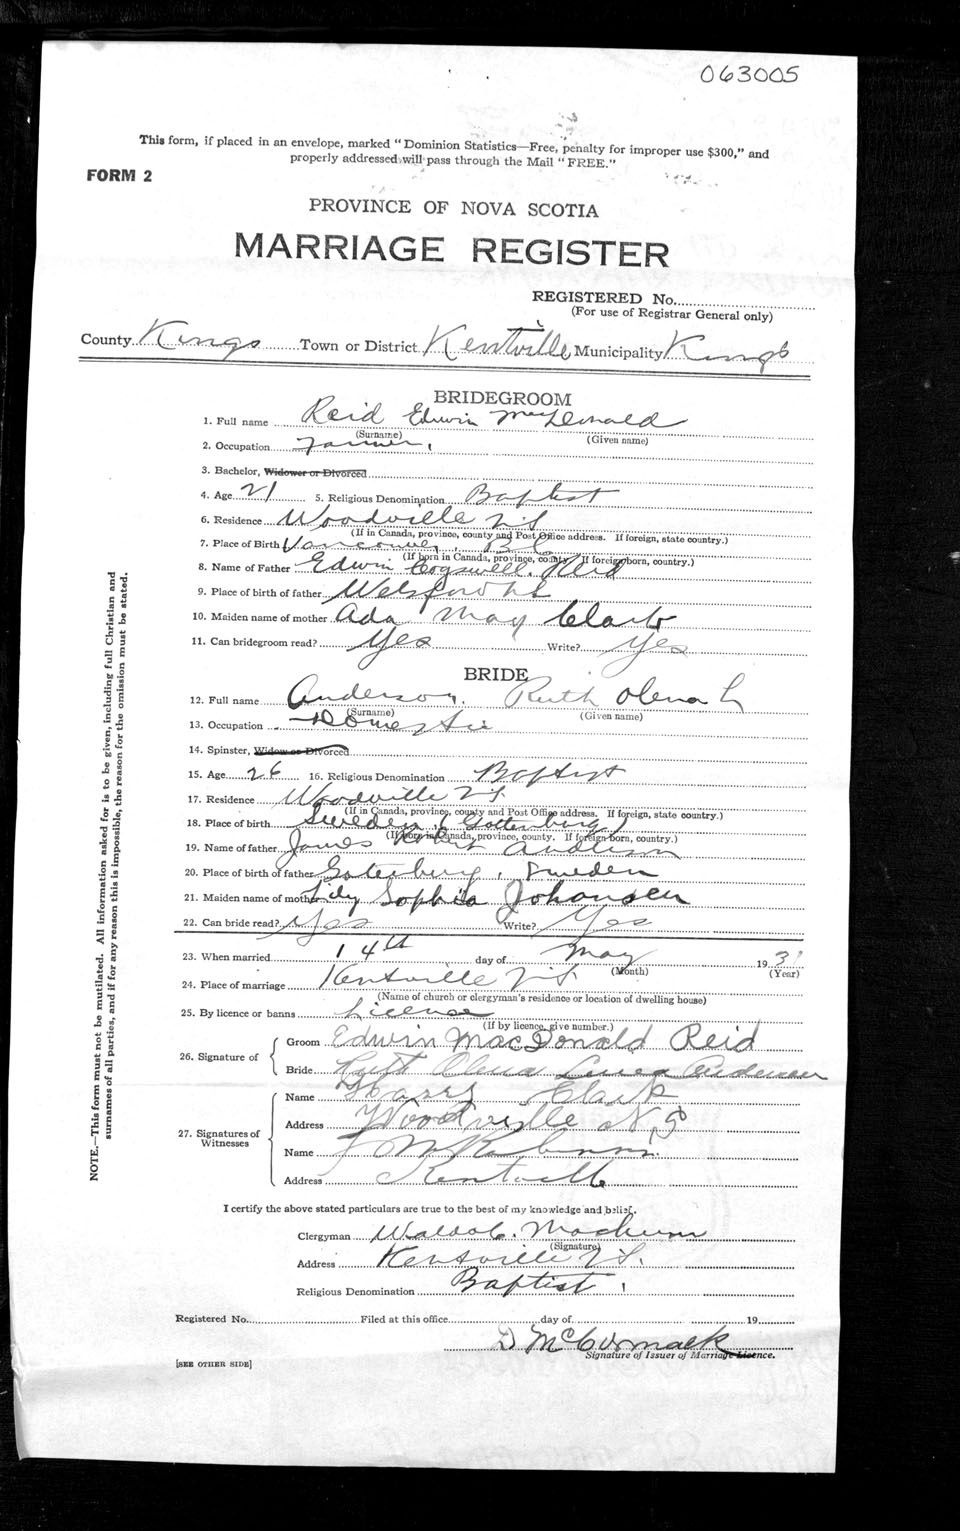 063005
This form, if placed in an envelope, marked "Dominion Statistics—Free, penalty for improper use $300," and
properly addressed will pass through the Mail "FREE."
FORM 2
PROVINCE OF NOVA SCOTIA
MARRIAGE REGISTER
REGISTERED No.
(For use of Registrar General only)
County Kings Town or District Kentville Municipality Kings
BRIDEGROOM
1. Full name Reid Edwin MacDonald
(Surname) (Given name)
2. Occupation Farmer.
3. Bachelor, Widower or Divorced
4. Age 21 5. Religious Denomination Baptist
6. Residence Woodville N.S
(If in Canada, province, county and Post Office address. If foreign, state country.)
7. Place of Birth Vancouver, B.C
(If born in Canada, province, county. If foreign born, country.)
8. Name of Father Edwin Cogswell Reid
9. Place of birth of father Welsford N.S
10. Maiden name of mother Ada May Clark
11. Can bridegroom read? Yes Write? Yes
BRIDE
12. Full name Anderson. Ruth Olena L
(Surname) (Given name)
13. Occupation Domestic
14. Spinster, Widow or Divorced
15. Age 26 16. Religious Denomination Baptist
17. Residence Woodville N.S.
(If in Canada, province, county and Post Office address. If foreign, state country.)
18. Place of birth Sweden (Gottenburg)
(If born in Canada, province, county. If foreign born, country.)
19. Name of father James Robert Anderson
20. Place of birth of father Gotenburg, Sweden
21. Maiden name of mother Lidy Sophia Johansen
22. Can bride read? Yes Write? Yes
23. When married 14th day of May 1931
(Month) (Year)
24. Place of marriage Kentville N.S
(Name of church or clergyman's residence or location of dwelling house)
25. By licence or banns License
(If by licence, give number.)
26. Signature of
Groom Edwin MacDonald Reid
Bride Ruth Olena Anderson
27. Signatures of Witnesses
Name Harry Clark
Address Woodville N.S
Name
Address Kentville
I certify the above stated particulars are true to the best of my knowledge and belief.
Clergyman
(Signature)
Address Kentville N.S.
Religious Denomination Baptist.
Registered No. Filed at this office day of 19
D McCormack
Signature of Issuer of Marriage Licence.
[SEE OTHER SIDE]
NOTE.—This form must not be mutilated. All information asked for is to be given, including full Christian and
surnames of all parties, and if for any reason this is impossible, the reason for the omission must be stated.